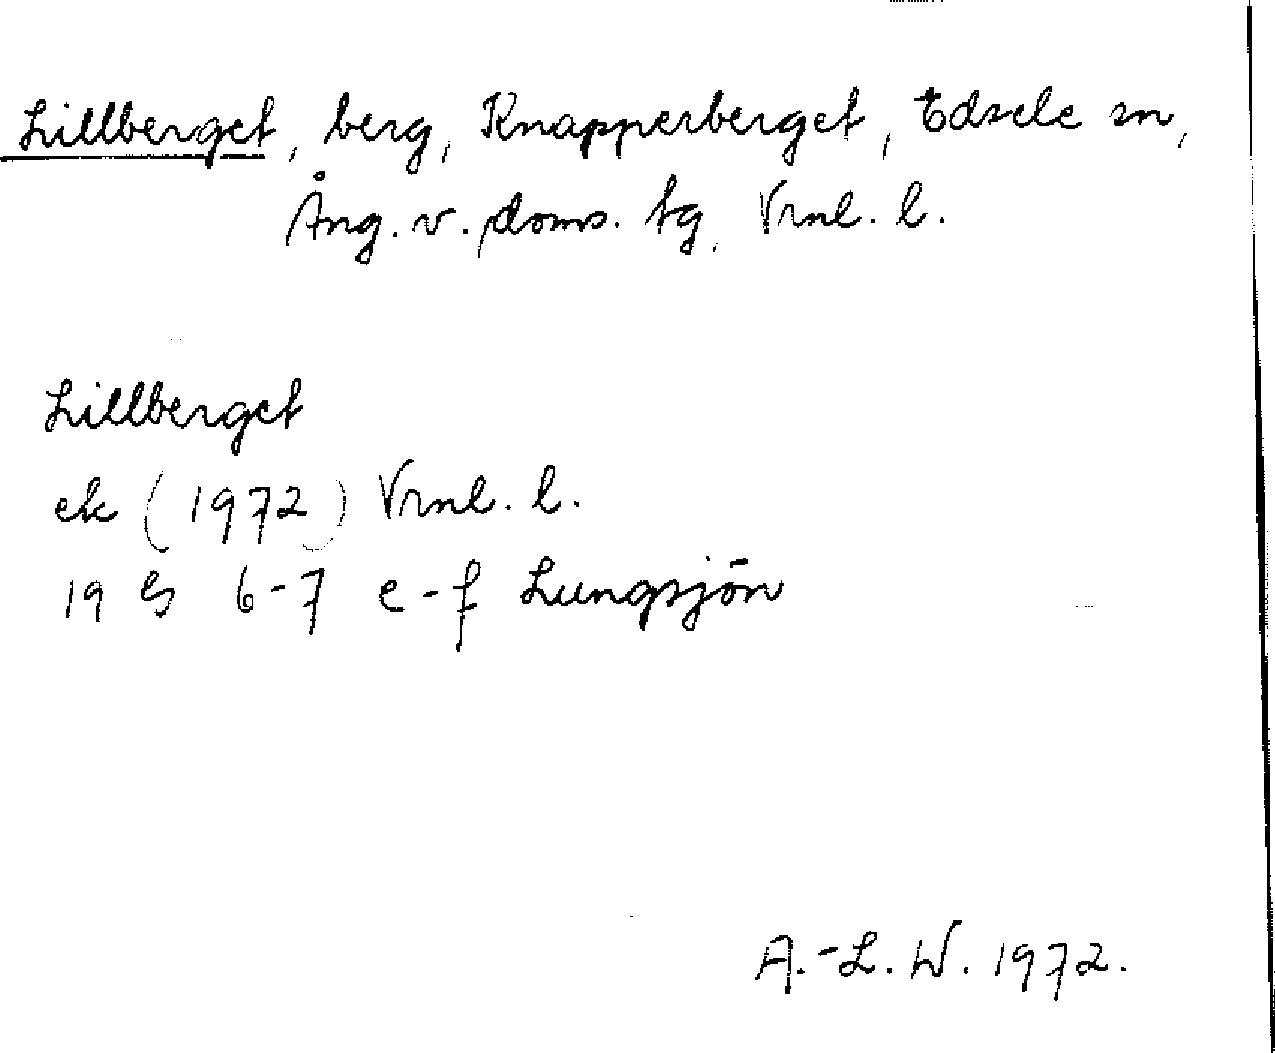 Lillberget, berg, Knapperberget, Edsele sn,
Ång. v. doms. tg. Vrnl. l.
Lillberget
ek (1972) Vrnl. l.
19 G 6-7 e-f Lungsjön
A.-L. W. 1972.